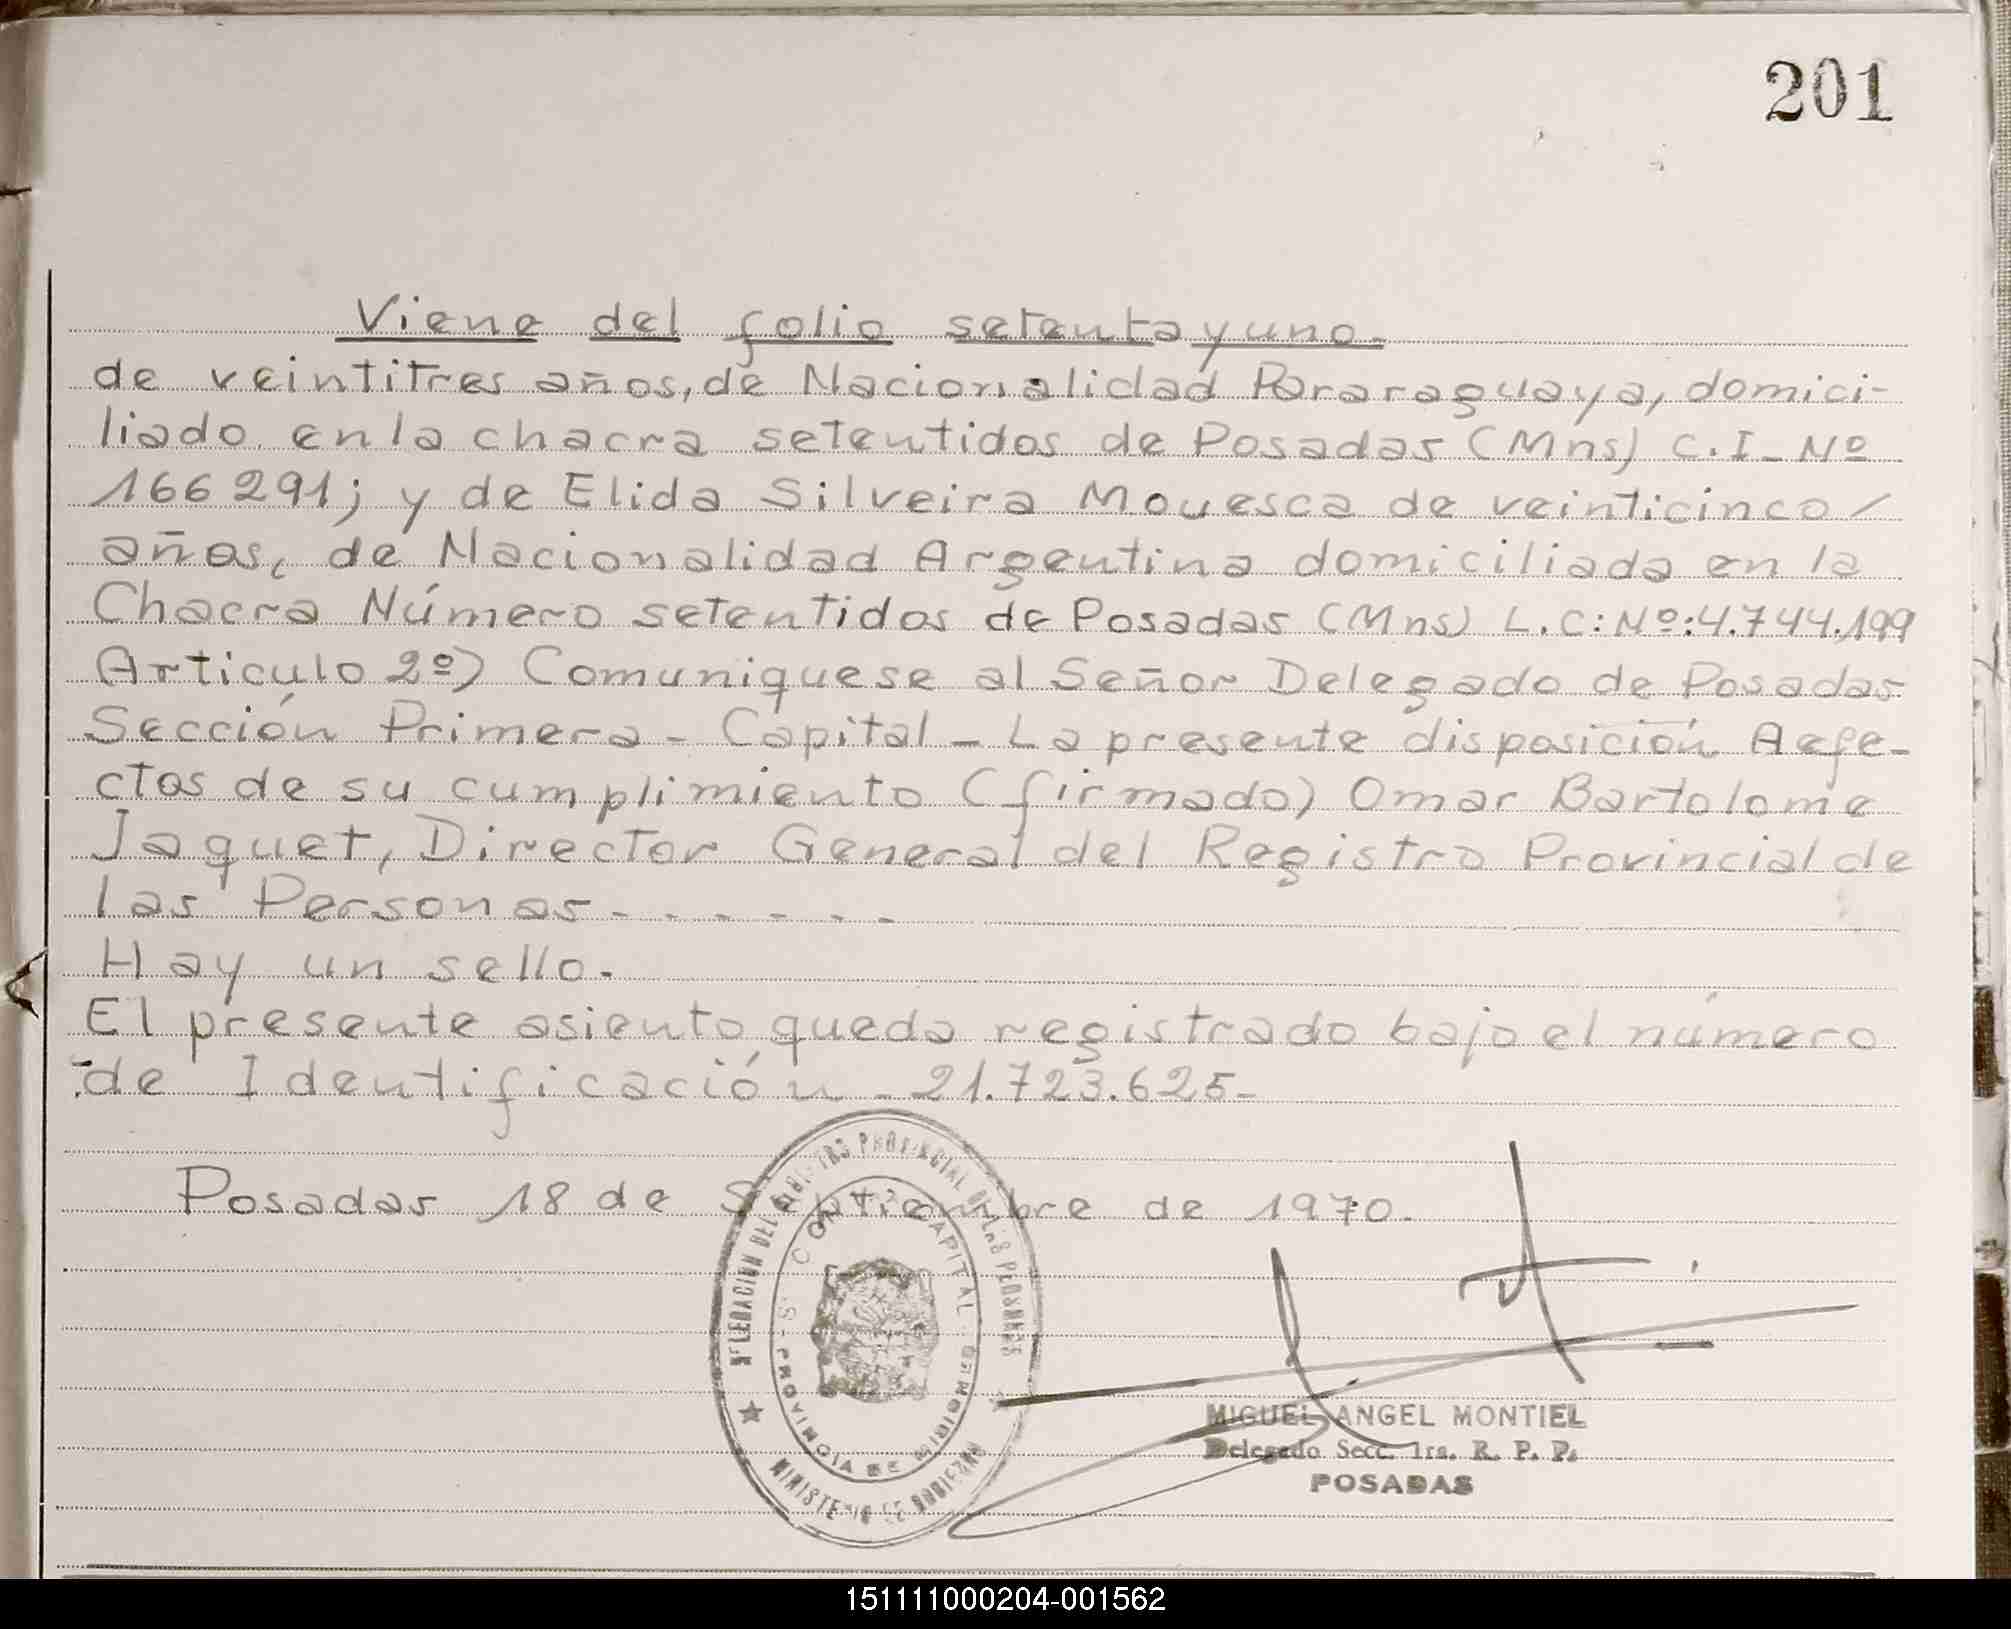 201
Viene del folio setentayuno.
de veintitres años, de Nacionalidad Pararaguaya, domici-
liado en la chacra setentidos de Posadas (Mns) C.I_ Nº
166291; y de Elida Silveira Mouesca de veinticinco /
años, de Nacionalidad Argentina domiciliada en la
Chacra Número setentidos de Posadas (Mns) L.C: Nº: 4.744.199
Articulo 2º) Comuniquese al Señor Delegado de Posadas
Sección Primera - Capital - La presente disposición Aefe-
ctos de su cumplimiento (firmado) Omar Bartolome
Jaquet, Director General del Registro Provincial de
las Personas - - - - - -
Hay un sello.
El presente asiento queda registrado bajo el número
de Identificación - 21.723.625-
Posadas 18 de Septiembre de 1970.
PROVINCIAL DE LAS PERSONAS
CAPITAL
PROVINCIA DE
MINISTERIO DE GOBIERNO
MIGUEL ANGEL MONTIEL
Delegado Secc. 1ra. R. P. P.
POSADAS
151111000204-001562